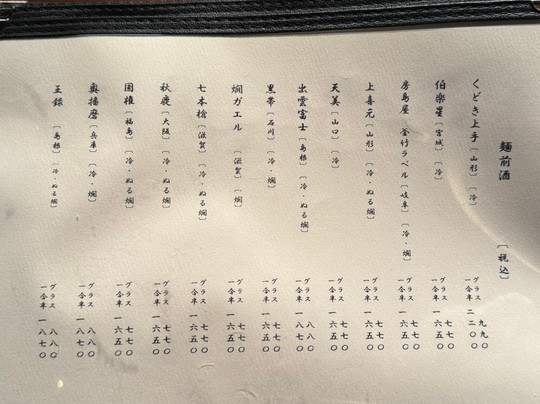 麺前酒 〔税込〕
くどき上手〔山形〕〔冷〕
グラス 九九〇
一合半 二二〇〇
伯楽星〔宮城〕〔冷〕
グラス 七七〇
一合半 一六五〇
房島屋 釜竹ラベル〔岐阜〕〔冷・燗〕
グラス 七七〇
一合半 一六五〇
上喜元〔山形〕〔冷・ぬる燗〕
グラス 七七〇
一合半 一六五〇
天美〔山口〕〔冷〕
グラス 七七〇
一合半 一六五〇
出雲富士〔島根〕〔冷・ぬる燗〕
グラス 八八〇
一合半 一八七〇
黒帯〔石川〕〔冷・燗〕
グラス 七七〇
一合半 一六五〇
燗ガエル〔滋賀〕〔燗〕
グラス 七七〇
一合半 一六五〇
七本槍〔滋賀〕〔冷・ぬる燗〕
グラス 七七〇
一合半 一六五〇
秋鹿〔大阪〕〔冷・ぬる燗〕
グラス 七七〇
一合半 一六五〇
国権〔福島〕〔冷・ぬる燗〕
グラス 七七〇
一合半 一六五〇
奥播磨〔兵庫〕〔冷・燗〕
グラス 八八〇
一合半 一八七〇
王録〔島根〕〔冷・ぬる燗〕
グラス 八八〇
一合半 一八七〇